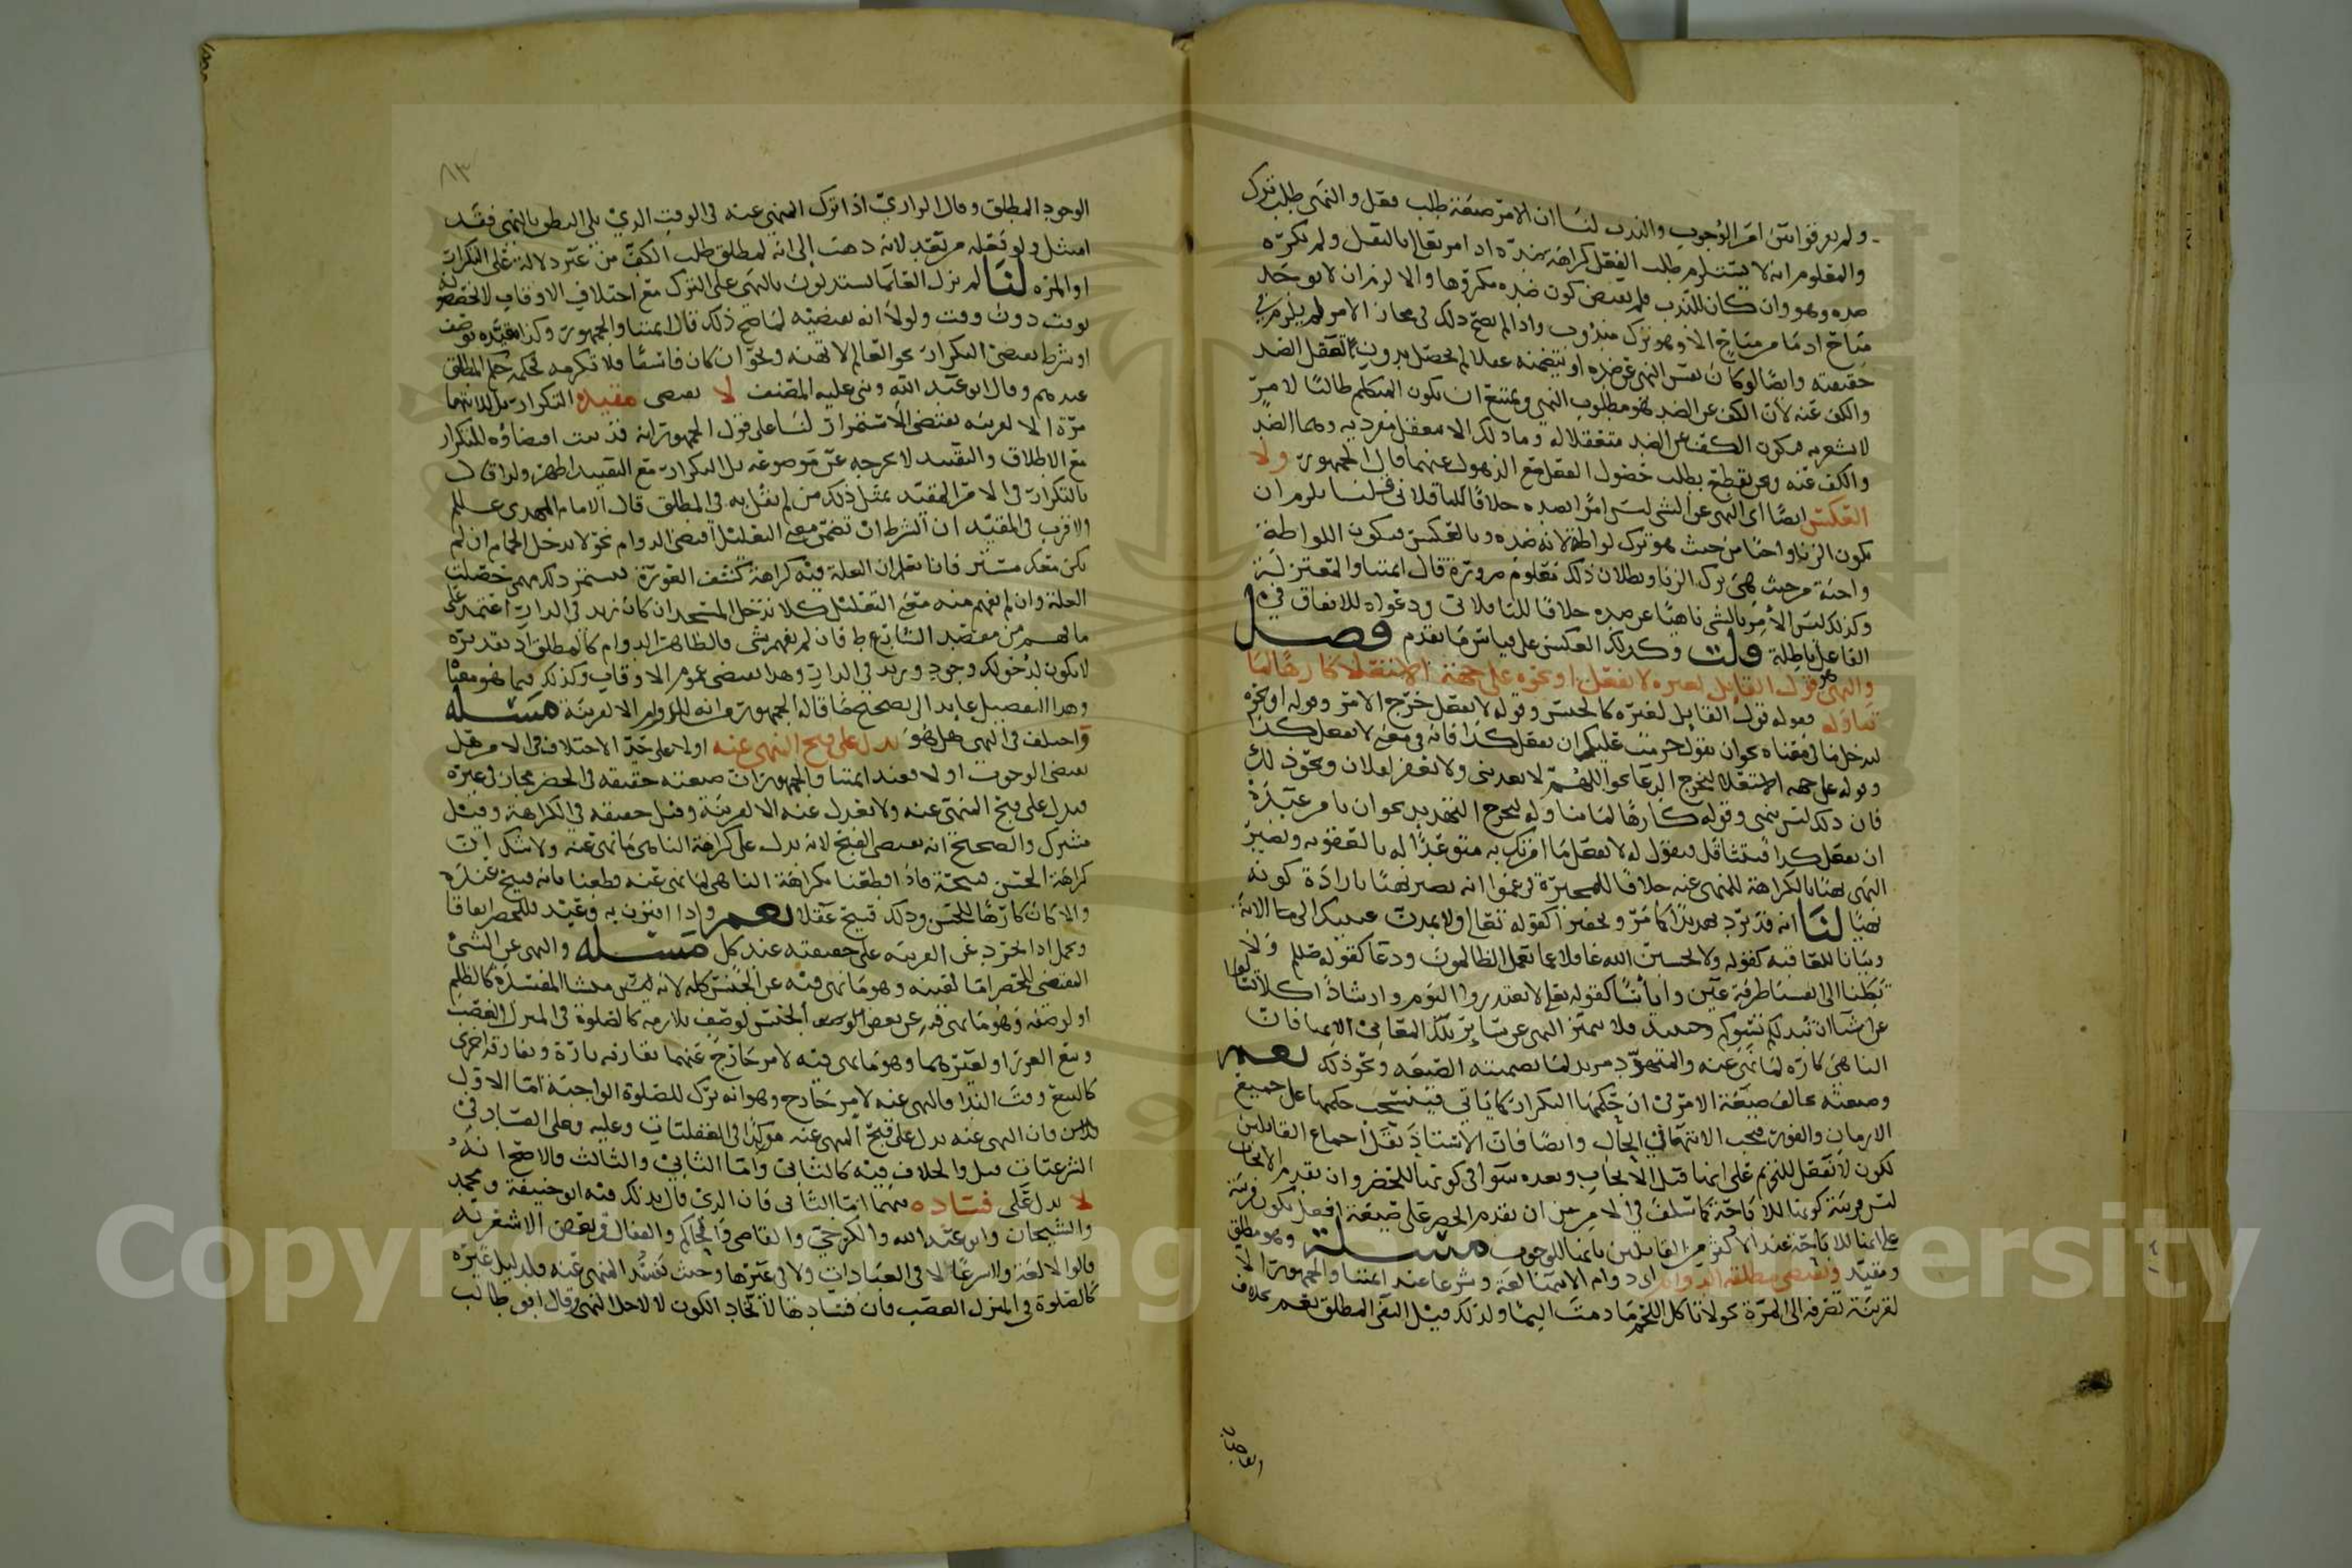 ولم يعرفوا بين امر الوجوب والندب لنا ان الامر صيغة طلب فعل والنهي طلب ترك
والمعلوم انه لا يستلزم طلب الفعل كراهة ضده اذ امر تعالى بالنفل ولم يكره
ضده وهو وان كان للندب فلم يقتض كون ضده مكروها والا لزم ان لا يوجد
مباح اذ ما من مباح الا وهو ترك مندوب واذا لم يصح ذلك في مجاز الامر لم يلزم في
حقيقته وايضا لو كان نفس النهي عن ضده او يتضمنه عقلا لم يحصل بدون تعقل الضد
والكف عنه لان الكف عن الضد هو مطلوب النهي ويمتنع ان يكون المتكلم طالبا لامر
لا يشعر به فيكون الكف عن الضد متعقلا له وما ذلك الا لتعقل مفرديه وهما الضد
والكف عنه ونحن نقطع بطلب حصول الفعل مع الذهول عنهما قال الجمهور ولا
العكس ايضا اى النهي عن الشي ليس امرا بضده خلافا للباقلاني قلنا يلزم ان
يكون الزنا واجبا من حيث هو ترك لواطة لانه ضده وبالعكس فيكون اللواطة
واجبة من حيث هي ترك الزنا وبطلان ذلك معلوم ضرورة قال ائمتنا والمعتزلة
وكذلك ليس الأمر بالشي ناهيا عن ضده خلافا للباقلاني ودعواه للاتفاق في
الفاعل باطلة قلت وكذلك العكس على قياس ما تقدم فصل
والنهي هو قول القايل لغيره لا تفعل او نحوه على جهة الاستعلا كارها لما
تناوله فقوله قول القايل لغيره كالجنس وقوله لا تفعل خرج الامر وقوله او نحوه
ليدخل ما في معناه نحو ان يقول حرمت عليكم ان تفعل كذا فانه في معنى لا تفعل كذا
وقوله على جهة الاستعلا يخرج الدعا نحو اللهم لا تعذبني ولا تغفر لفلان ونحو ذلك
فان ذلك ليس بنهي وقوله كارها لما تناوله ليخرج التهديد نحو ان يامر عبده
ان يفعل كذا فيتثاقل فيقول له لا تفعل ما امرتك به متوعدا له بالعقوبه ويصير
النهي نهيا بالكراهة للمنهي عنه خلافا للمجبرة زعموا انه يصير نهيا بارادة كونه
نهيا لنا انه قد يرد تهديدا كما مر وتحقيرا كقوله تعالى ولا تمدن عينيك الى ما الاية
وبيانا للعاقبة كقوله ولا تحسبن الله غافلا عما يعمل الظالمون ودعا كقوله صلم ولا
تكلنا الى انفسنا طرفة عين وايأسا كقوله تعلى لا تعتذروا اليوم وارشادا كلا تسالوا
عن اشيا ان تبد لكم تسؤكم وحينئذ فلا يتميز النهي عن ساير تلك المعاني الا بها فان
الناهي كاره لما نهي عنه والمتهدد مريد لما تضمنته الصيغه ونحو ذلك نعم
وصيغته تخالف صيغة الامر في ان حكمها التكرار كما ياتي فينسحب حكمها على جميع
الازمان والفور فيجب الانتها في الحال وايضا فان الاستاذ نقل اجماع القايلين
بكون لا تفعل للتحريم على انها قبل الايجاب وبعده سوا في كونها للحضر وان تقدم الايجاب
ليس قرينة كونها للاباحة كما سلف في الامر من ان تقدم الحصر على صيغة افعل يكون قرينة
على انها للاباحة عند الاكثر من القايلين بانها للوجوب مسئلة وهو مطلق
ومقيد ويقتضي مطلقه الدوام اى دوام الانتها لغة وشرعا عند ائمتنا والجمهور الا
لقرينة تصرفه الى المرة نحو لا تاكل اللحم ما دمت اليما ولذلك قيل النفي المطلق يعم بخلاف
الوجود المطلق وقال الرازي اذا ترك المنهي عنه في الوقت الذي يلي النطق بالنهي فقد
امتثل ولو فعله من بعد لانه ذهب الى انه لمطلق طلب الكف من غير دلالة على التكرار
او المره لنا لم تزل العلما يستدلون بالنهي على الترك مع اختلاف الاوقات لا يخصونه
بوقت دون وقت ولولا انه يقتضيه لما صح ذلك قال ائمتنا والجمهور وكذا مقيده بوصف
او شرط يقتضي التكرار نحو العالم لا تهنه ونحو ان كان فاسقا فلا تكرمه فحكمه حكم المطلق
عندهم وقال ابو عبد الله وبني عليه المصنف لا يقتضي مقيده التكرار بل للانتها
مرة الا لقرينه تقتضي الاستمرار لنا على قول الجمهور انه قد ثبت اقتضاؤه للتكرار
مع الاطلاق والتقييد لا يخرجه عن موضوعه بل التكرار مع التقييد اظهر ولذا قال
بالتكرار في الامر المقيد بمثل ذلك من لم يقل به في المطلق قال الامام المهدي علم
والاقرب في المقيد ان الشرط ان تضمن معنى التعليل اقتضى الدوام نحو لا تدخل الحمام ان لم
يكن معك مئزر فانا نعلم ان العلة فيه كراهة كشف العورة فيستمر ذلك مهما حصلت
العلة وان لم يفهم منه معنى التعليل كلا تدخل المسجد ان كان زيد في الدار اعتمد على
ما فهم من مقصد الشارع ط فان لم يفهم شي فالظاهر الدوام كالمطلق اذ تقديره
لا يكون لدخولك وجود وزيد في الدار وهذا يقتضي عموم الاوقات وكذلك فيما فهو معها
وهذا التفصيل عايد الى تصحيح ما قاله الجمهور من انه للدوام الا لقرينة مسئله
واختلف في النهي هل هو يدل على قبح المنهي عنه او لا على حد الاختلاف في الامر هل
يقتضي الوجوب او لا فعند ائمتنا والجمهور ان صيغته حقيقه في الحضر مجاز في غيره
فيدل على قبح المنهي عنه ولا يعدل عنه الا لقرينة وقيل حقيقه في الكراهة وقيل
مشترك والصحيح انه يقتضي القبح لانه يدل على كراهة الناهي ما نهي عنه ولا شك ان
كراهة الحسن قبيحة فاذا قطعنا بكراهة الناهي لما نهى عنه قطعنا بانه قبيح عنده
والا كان كارها للحسن وذلك قبيح عقلا نعم واذا اقترن به وعيد فللحضر اتفاقا
ويحمل اذا تجرد عن القرينه على حقيقته عند كل مسئله والنهي عن الشئ
المقتضي للحضر اما لعينه وهو ما نهى فيه عن الجنس كله لانه ليس منشا المفسدة كالظلم
او لوصفه وهو ما نهي فيه عن بعض الجنس لوصف يلازمه كالصلوة في المنزل الغصب
وبيع الغرر او لغيرهما وهو ما نهي فيه لامر خارج عنهما يقارنه تارة ويفارقه اخرى
كالبيع وقت الندا فالنهي عنه لامر خارج وهو انه ترك للصلوة الواجبة اما الاول
فان النهي عنه يدل على قبح المنهي عنه مؤكدا في العقليات وعليه وعلى الفساد في
الشرعيات قيل والخلاف فيه كالثاني واما الثاني والثالث فالاصح انه
لا يدل على فساده فيهما اما الثاني فان الذي قال بذلك فيه ابو حنيفة ومحمد
والشيخان وابو عبد الله والكرخي والقاضي والحاكم والقفال وبعض الاشعرية
قالوا لا لغة ولا شرعا لا في العبادات ولا في غيرها وحيث يفسد المنهي عنه فلدليل غيره
كالصلوة في المنزل الغصب فان فسادها لاتحاد الكون لا لاجل النهي وقال ابو طالب